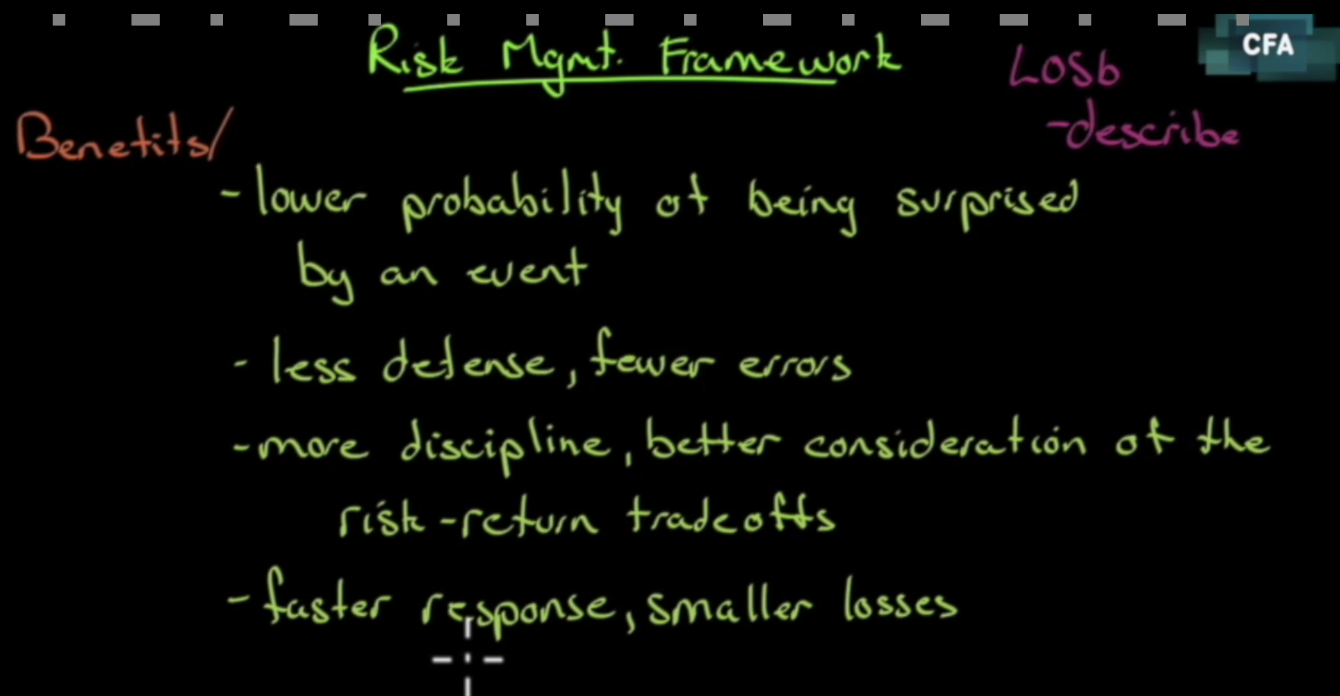 Risk Mgmt. Framework
LOSb
-describe
CFA
Benefits/
- lower probability of being surprised
by an event
- less defense, fewer errors
- more discipline, better consideration of the
risk-return tradeoffs
- faster response, smaller losses